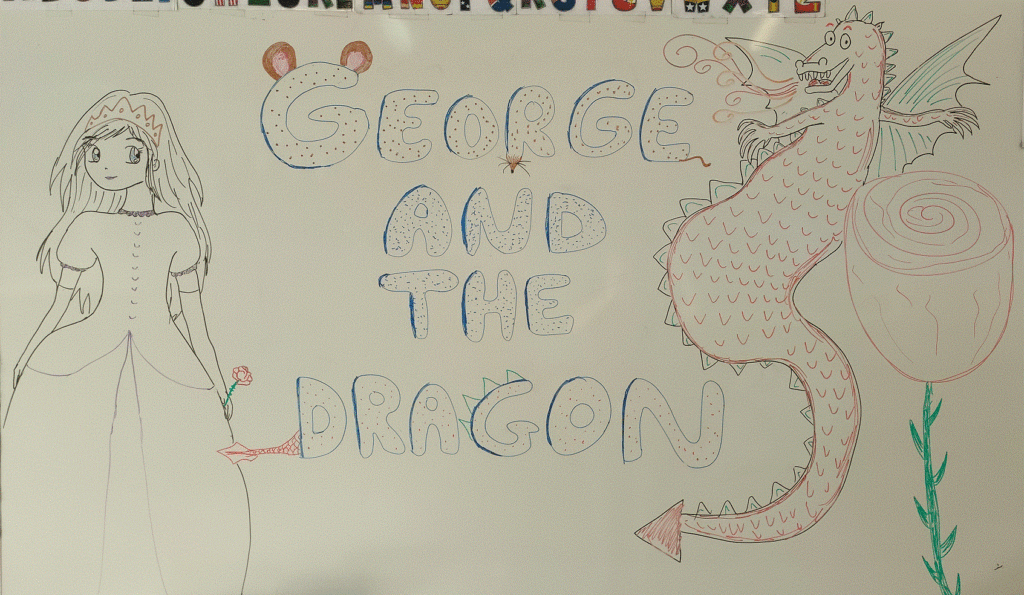 GEORGE
AND
THE
DRAGON